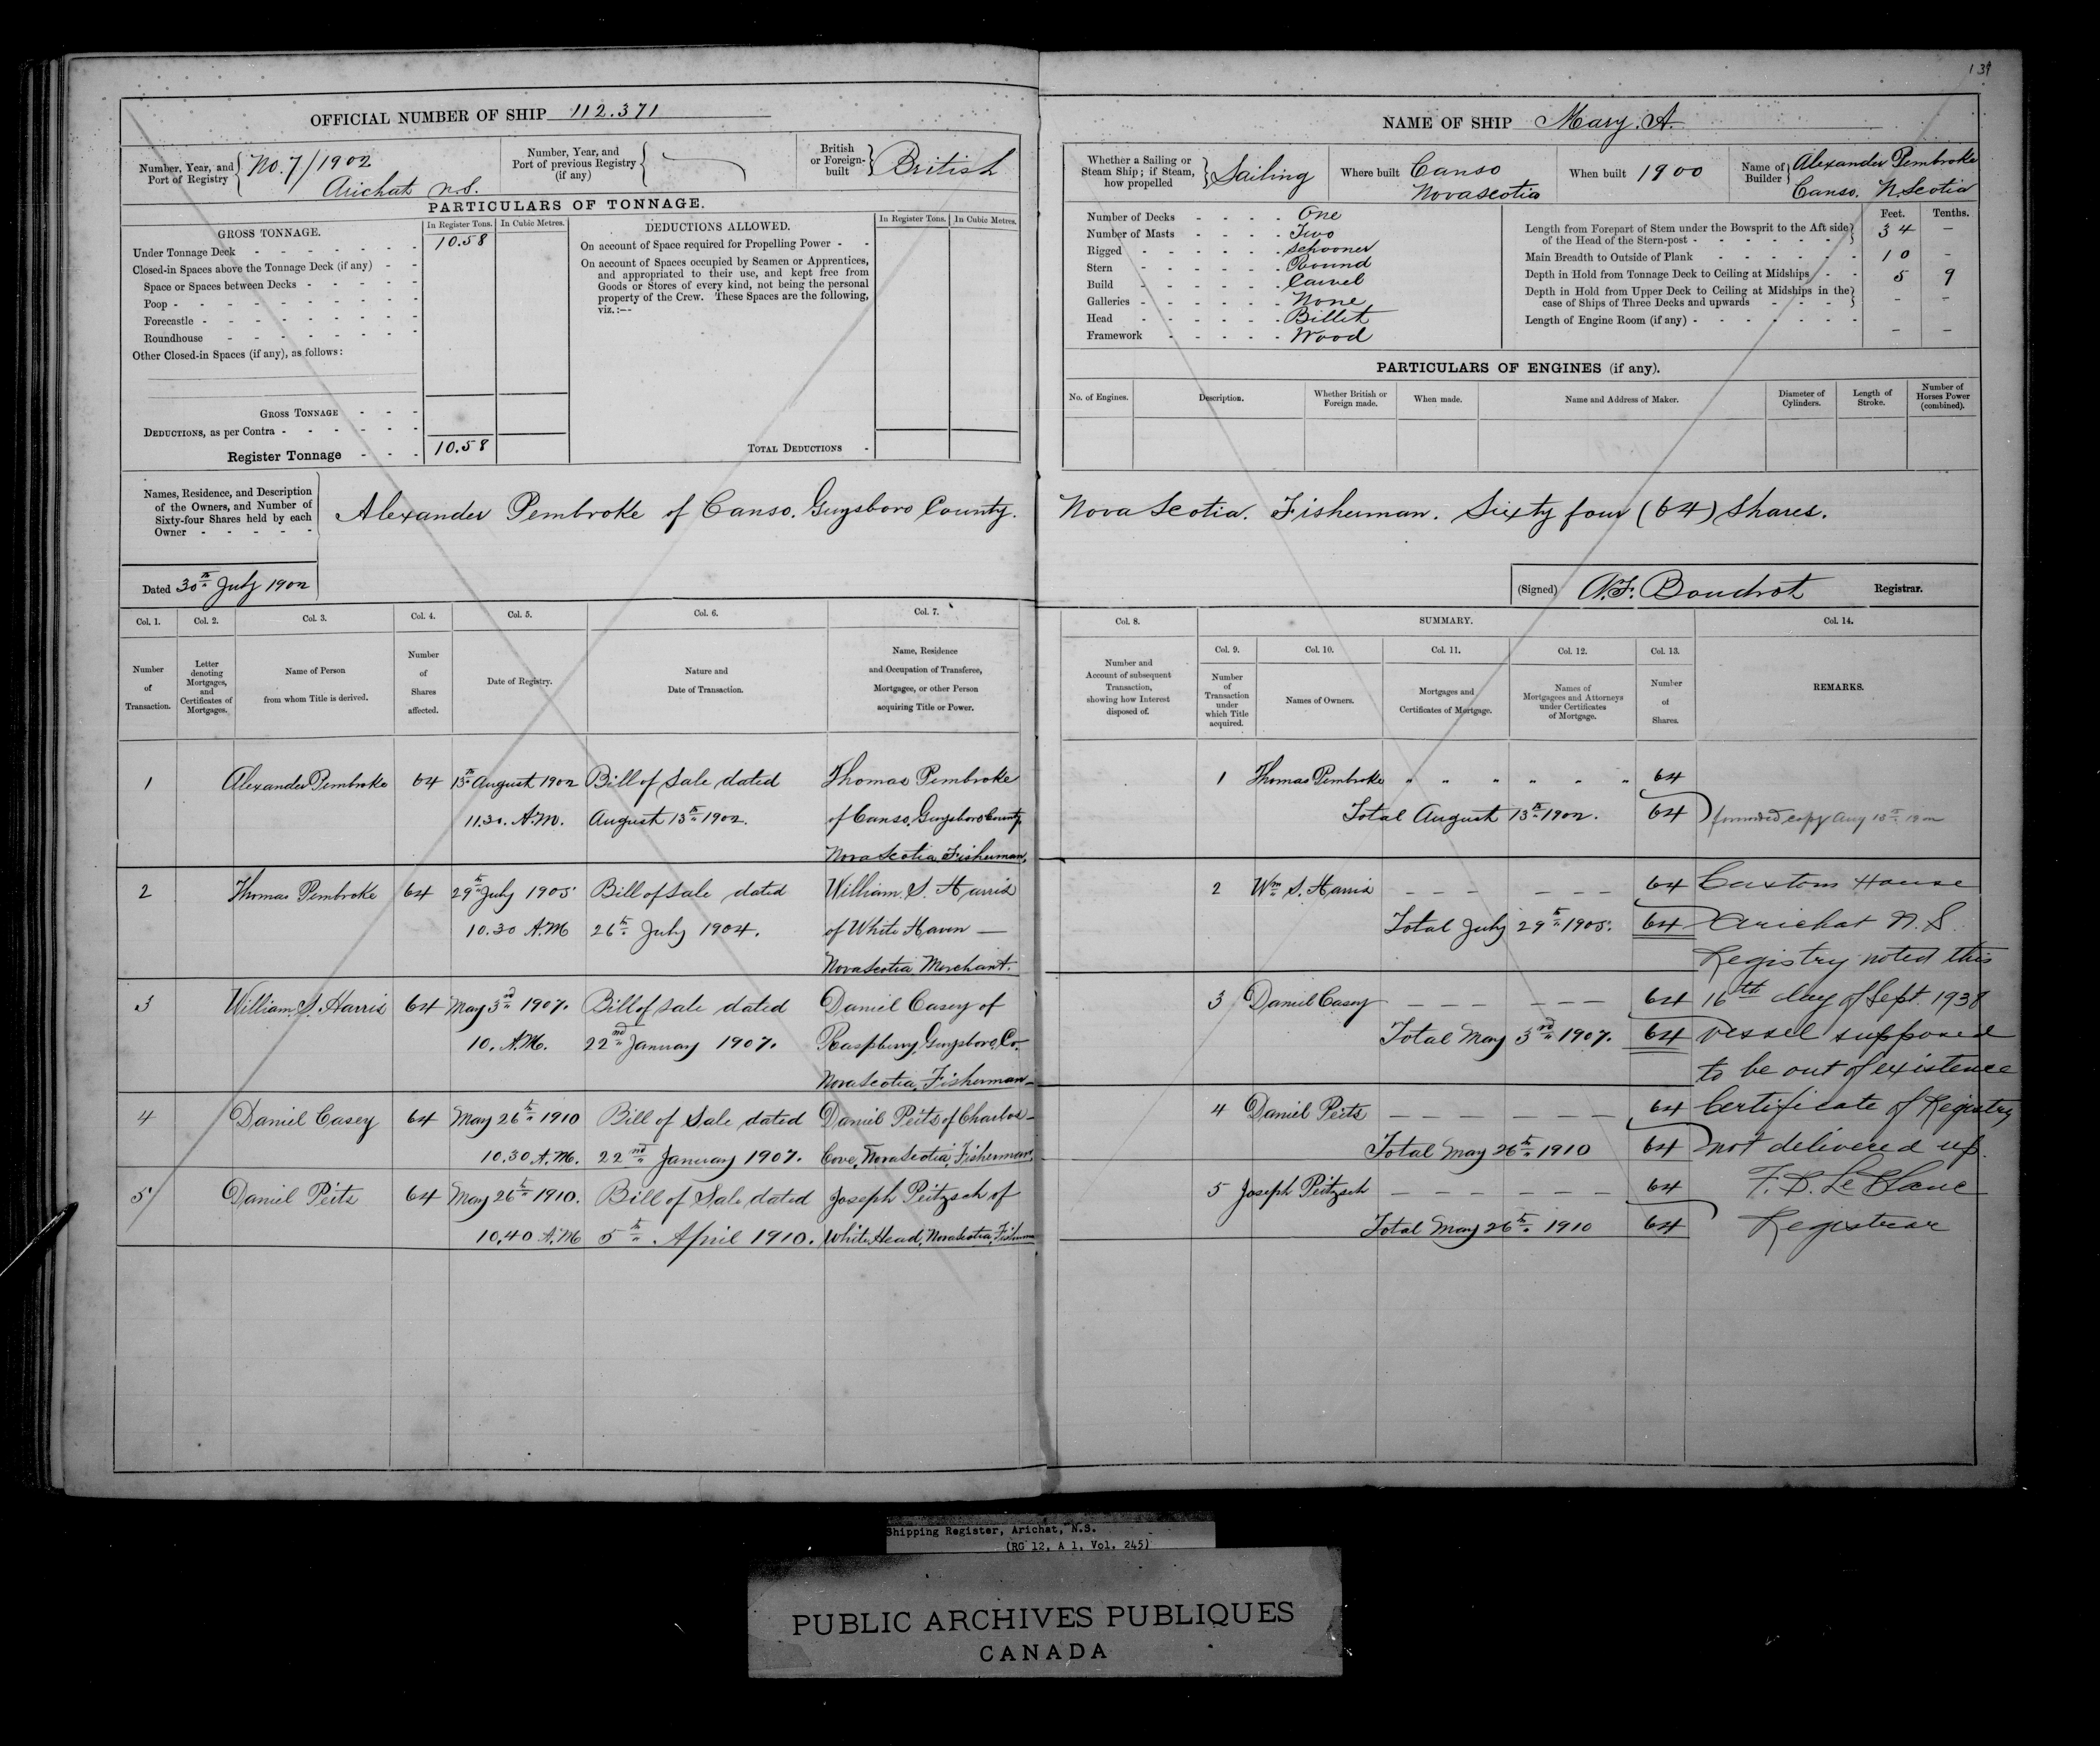 139
OFFICIAL NUMBER OF SHIP 112.371
Number, Year, and Port of Registry No. 7/1902 Arichat N.S.
Number, Year, and Port of previous Registry (if any)
British or Foreign-built British
PARTICULARS OF TONNAGE.
GROSS TONNAGE.
In Register Tons. In Cubic Metres.
Under Tonnage Deck - - - - - - - 10.58
Closed-in Spaces above the Tonnage Deck (if any) - -
Space or Spaces between Decks - - - - -
Poop - - - - - - - - - -
Forecastle - - - - - - - - -
Roundhouse - - - - - - - -
Other Closed-in Spaces (if any), as follows:
GROSS TONNAGE - - -
DEDUCTIONS, as per Contra - - - - - -
Register Tonnage - - - 10.58
DEDUCTIONS ALLOWED.
In Register Tons. In Cubic Metres.
On account of Space required for Propelling Power - -
On account of Spaces occupied by Seamen or Apprentices,
and appropriated to their use, and kept free from
Goods or Stores of every kind, not being the personal
property of the Crew. These Spaces are the following,
viz.:—
TOTAL DEDUCTIONS -
NAME OF SHIP Mary. A.
Whether a Sailing or Steam Ship; if Steam, how propelled Sailing
Where built Canso Nova Scotia
When built 1900
Name of Builder Alexander Pembroke Canso. N. Scotia
Number of Decks - - - - One
Number of Masts - - - - Two
Rigged - - - - - - Schooner
Stern - - - - - - Round
Build - - - - - - Carvel
Galleries - - - - - - None
Head - - - - - - Billet
Framework - - - - - Wood
Feet. Tenths.
Length from Forepart of Stem under the Bowsprit to the Aft side of the Head of the Stern-post - 34 –
Main Breadth to Outside of Plank - 10 -
Depth in Hold from Tonnage Deck to Ceiling at Midships - - 5 9
Depth in Hold from Upper Deck to Ceiling at Midships in the case of Ships of Three Decks and upwards - – –
Length of Engine Room (if any) - – –
PARTICULARS OF ENGINES (if any).
No. of Engines. Description. Whether British or Foreign made. When made. Name and Address of Maker. Diameter of Cylinders. Length of Stroke. Number of Horses Power (combined).
Names, Residence, and Description of the Owners, and Number of Sixty-four Shares held by each Owner - - - - -
Alexander Pembroke of Canso. Guysboro County. Nova Scotia. Fisherman. Sixty four (64) Shares.
Dated 30th July 1902
(Signed) A.F. Boudrot Registrar.
Col. 1. Col. 2. Col. 3. Col. 4. Col. 5. Col. 6. Col. 7.
Number of Transaction.
Letter denoting Mortgages, and Certificates of Mortgages.
Name of Person from whom Title is derived.
Number of Shares affected.
Date of Registry.
Nature and Date of Transaction.
Name, Residence and Occupation of Transferee, Mortgagee, or other Person acquiring Title or Power.
Col. 8. SUMMARY. Col. 14.
Col. 9. Col. 10. Col. 11. Col. 12. Col. 13.
Number and Account of subsequent Transaction, showing how Interest disposed of.
Number of Transaction under which Title acquired.
Names of Owners.
Mortgages and Certificates of Mortgage.
Names of Mortgagees and Attorneys under Certificates of Mortgage.
Number of Shares.
REMARKS.
1 Alexander Pembroke 64 13th August 1902 Bill of Sale dated Thomas Pembroke
11.30. A.M. August 13th 1902. of Canso, Guysboro County
Nova Scotia, Fisherman.
2 Thomas Pembroke 64 29th July 1905 Bill of sale dated William. S. Harris
10.30 A.M 26th July 1904. of White Haven —
Nova Scotia, Merchant.
3 William S. Harris 64 May 3rd 1907. Bill of sale dated Daniel Casey of
10. A.M. 22nd January 1907. Raspberry, Guysboro, Co.
Nova Scotia, Fisherman —
4 Daniel Casey 64 May 26th 1910 Bill of Sale dated Daniel Peits of Charlos —
10.30 A.M. 22nd January 1907. Cove, Nova Scotia, Fisherman,
5 Daniel Peits 64 May 26th 1910. Bill of Sale dated Joseph Peitzsch of
10,40 A.M 5th April 1910. White Head, Nova Scotia,
1 Thomas Pembroke " " " " " " 64
Total August 13th 1902. 64 forwarded copy Aug 13th 1902
2 Wm S. Harris – – – – – – 64
Total July 29th 1905. 64
3 Daniel Casey – – – – – – 64
Total May 3rd 1907. 64
4 Daniel Peits – – – – – – 64
Total May 26th 1910 64
5 Joseph Peitzsch – – – – – – 64
Total May 26th 1910 64
Custom House
Arichat N.S.
Registry noted this
16th day of Sept. 1938
vessel supposed
to be out of existence
Certificate of Registry
not delivered up.
F. D. LeBlanc
Registrar
Shipping Register, Arichat, N.S.
(RG 12, A 1, Vol. 245)
PUBLIC ARCHIVES PUBLIQUES
CANADA